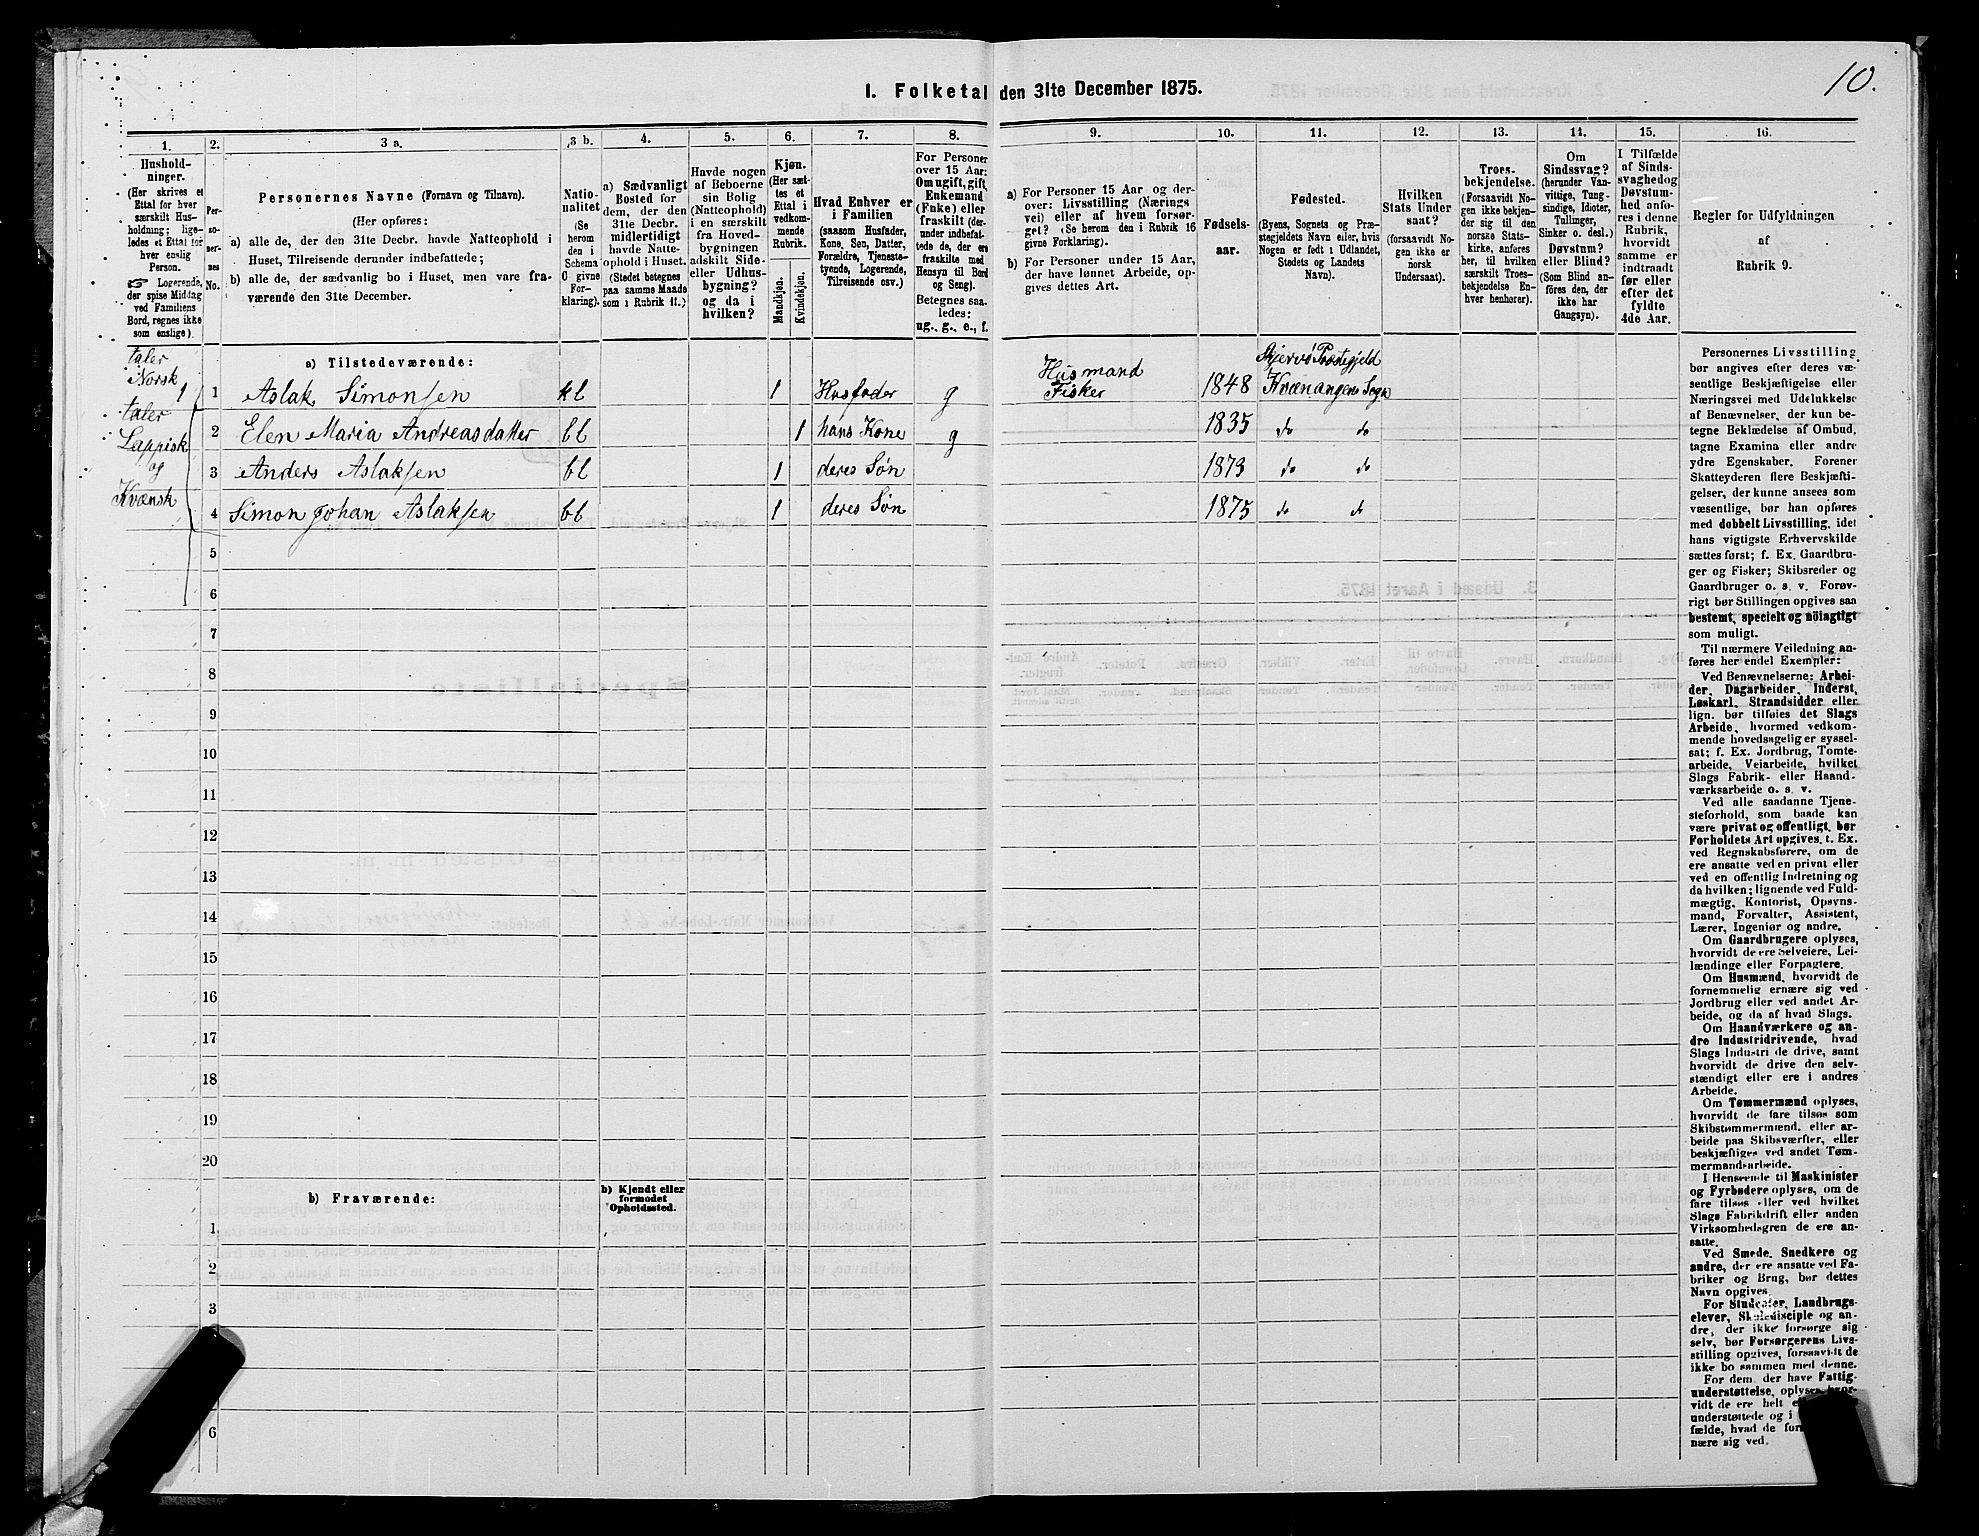 10.
1. Folketal den 31te December 1875.
1. 2. 3 a. 3 b. 4. 5. 6. 7. 8. 9. 10. 11. 12. 13. 14. 15. 16.
Hushold-
ninger.
(Her skrives et
Ettal for hver
særskilt Hus-
holdning; lige-
ledes et Ettal for
hver enslig
Person.
☞ Logerende,
der spise Middag
ved Familiens
Bord, regnes ikke
som enslige).
Per-
soner-
nes
No.
Personernes Navne (Fornavn og Tilnavn).
(Her opføres:
a) alle de, der den 31te Decbr. havde Natteophold i
Huset, Tilreisende derunder indbefattede;
b) alle de, der sædvanlig bo i Huset, men vare fra-
værende den 31te December.
Natio-
nalitet
(Se
herom
den i
Schema
C givne
For-
klaring).
a) Sædvanligt
Bosted for
dem, der den
31te Decbr.
midlertidigt
havde Natte-
ophold i Huset.
(Stedet betegnes
paa samme Maade
som i Rubrik 11.)
Havde nogen
af Beboerne
sin Bolig
(Natteophold)
i en særskilt
fra Hoved-
bygningen
adskilt Side-
eller Udhus-
bygning?
og da i
hvilken?
Kjøn.
(Her sæt-
tes et
Ettal i
vedkom-
mende
Rubrik.
Mandkjøn.
Kvindekjøn.
Hvad Enhver er
i Familien
(saasom Husfader,
Kone, Søn, Datter,
Forældre, Tjeneste-
tyende, Logerende,
Tilreisende osv.)
For Personer
over 15 Aar:
Om ugift, gift,
Enkemand
(Enke) eller
fraskilt (der-
under indbefat-
tede de, der ere
fraskilte med
Hensyn til Bord
og Seng).
Betegnes saa-
ledes:
ug., g., e., f.
a) For Personer 15 Aar og der-
over: Livsstilling (Nærings
vei) eller af hvem forsør-
get? (Se herom den i Rubrik 16
givne Forklaring).
b) For Personer under 15 Aar,
der have lønnet Arbeide, op-
gives dettes Art.
Fødsels-
aar.
Fødested.
(Byens, Sognets og Præ-
stegjeldets Navn eller, hvis
Nogen er født i Udlandet,
Stedets og Landets
Navn).
Hvilken
Stats Under
saat?
(forsaavidt No-
gen ikke er
norsk
Undersaat).
Troes-
bekjendelse.
(Forsaavidt No-
gen ikke bekjen-
der sig til den
norske Stats-
kirke, anføres
her, til hvilken
særskilt Troes-
bekjendelse En-
hver henhører).
Om
Sindssvag?
(herunder Van-
vittige, Tung-
sindige, Idioter,
Tullinger,
Sinker o. desl.)
Døvstum?
eller Blind?
(Som Blind an-
føres den, der
ikke har
Gangsyn).
I Tilfælde
af Sinds-
svaghed og
Døvstum-
hed anfø-
res i denne
Rubrik,
hvorvidt
samme er
indtraadt
før eller
efter det
fyldte
4de Aar.
Regler for Udfyldningen
af
Rubrik 9.
a) Tilstedeværende:
taler
Norsk
taler
Lappisk
og
Kvænsk
1 1 Aslak Simonsen kl 1 Husfader g Husmand Fisker 1848 Skjervö Præstegjeld Kvænangens Sogn
2 Elen Maria Andreasdatter bl 1 hans Kone g 1835 do do
3 Anders Aslaksen bl 1 deres Søn 1873 do do
4 Simon Johan Aslaksen bl 1 deres Søn 1875 do do
5
6
7
8
9
10
11
12
13
14
15
16
17
18
19
20
b) Fraværende:
b) Kjendt eller
formodet
Opholdssted.
1
2
3
6
Personernes Livsstilling
bør angives efter deres væ-
sentlige Beskjæftigelse eller
Næringsvei med Udelukkelse
af Benævnelser, der kun be-
tegne Beklædelse af Ombud,
tagne Examina eller andre
ydre Egenskaber. Forener
Skatteyderen flere Beskjæfti-
gelser, der kunne ansees som
væsentlige, bør han opføres
med dobbelt Livsstilling, idet
hans vigtigste Erhvervskilde
sættes først; f. Ex. Gaardbru-
ger og Fisker; Skibsreder og
Gaardbruger o. s. v. Forøv-
rigt bør Stillingen opgives saa
bestemt, specielt og nöiagtigt
som muligt.
Til nærmere Veiledning an-
føres her endel Exempler:
Ved Benævnelserne: Arbei-
der, Dagarbeider, Inderst,
Løskarl, Strandsidder eller
lign. bør tilføies det Slags
Arbeide, hvormed vedkom-
mende hovedsagelig er syssel-
sat; f. Ex. Jordbrug, Tomte-
arbeide, Veiarbeide, hvilket
Slags Fabrik- eller Haand-
værksarbeide o. s. v.
Ved alle saadanne Tjene-
steforhold, som baade kan
være privat og offentligt, bør
Forholdets Art opgives, t. Ex.
ved Regnskabsførere, om de
ere ansatte ved en privat eller
ved en offentlig Indretning og
da hvilken; lignende ved Fuld-
mægtig, Kontorist, Opsyns-
mand, Forvalter, Assistent,
Lærer, Ingeniør og andre.
Om Gaardbrugere oplyses,
hvorvidt de ere Selveiere, Lei-
lændinge eller Forpagtere.
Om Husmænd, hvorvidt de
fornemmelig ernære sig ved
Jordbrug eller ved andet Ar-
beide, og da af hvad Slags.
Om Haandværkere og an-
dre Industridrivende, hvad
Slags Industri de drive, samt
hvorvidt de drive den selv-
stændigt eller ere i andres
Arbeide.
Om Tømmermænd oplyses,
hvorvidt de fare tilsøs som
Skibstømmermænd, eller ar-
beide paa Skibsværfter, eller
beskjæftiges ved andet Tøm-
mermandsarbeide.
I Henseende til Maskinister
og Fyrbødere oplyses, om de
fare tilsøs eller ved hvilket
Slags Fabrikdrift eller anden
Virksomhed gren de ere an-
satte.
Ved Smede, Snedkere og
andre, der ere ansatte ved Fa-
briker og Brug, bør dettes
Navn opgives.
For Studenter, Landbrugs-
elever, Skoledisciple og an-
dre, der ikke forsørge sig
selv, bør Forsørgerens Livs-
stilling opgives, forsaavidt de
ikke bo sammen med denne.
For dem, der have Fattig-
understøttelse, oplyses hvor-
vidt de ere helt e
understøttede og i
fælde, hvad de for
nære sig ved.